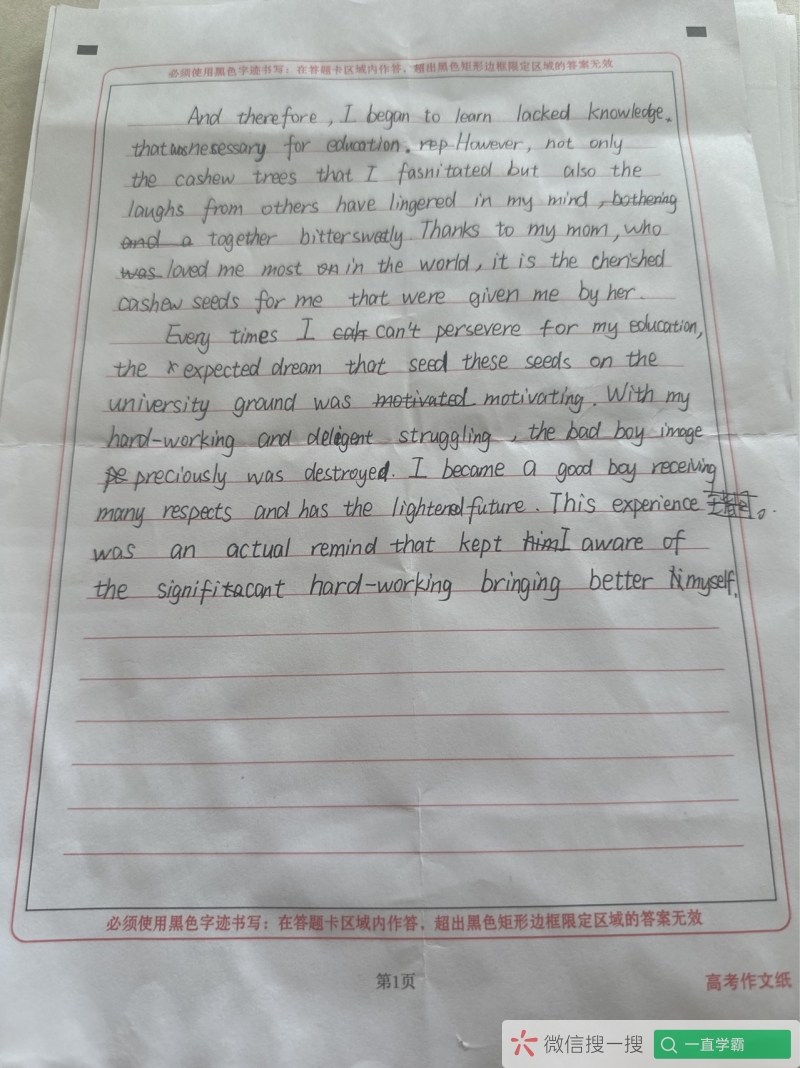 必须使用黑色字迹书写：在答题卡区域内作答，超出黑色矩形边框限定区域的答案无效
And therefore, I began to learn lacked knowledge.
that was nesessary for education. rep However, not only
the cashew trees that I fasnitated but also the
laughs from others have lingered in my mind, bothering
and a together bitterswetly. Thanks to my mom, who
was loved me most on in the world, it is the cherished
cashew seeds for me that were given me by her.
Every times I can't persevere for my education,
the expected dream that seed these seeds on the
university ground was motivated motivating. With my
hard-working and deligent struggling, the bad boy image
pe preciously was destroyed. I became a good boy receiving
many respects and has the lightened future. This experience
was an actual remind that kept him I aware of
the signifitacant hard-working bringing better himyself.
必须使用黑色字迹书写：在答题卡区域内作答，超出黑色矩形边框限定区域的答案无效
第1页
高考作文纸
微信搜一搜
一直学霸